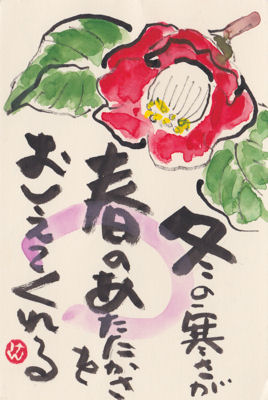 冬の寒さが
春のあたたかさを
おしえてくれる
けん